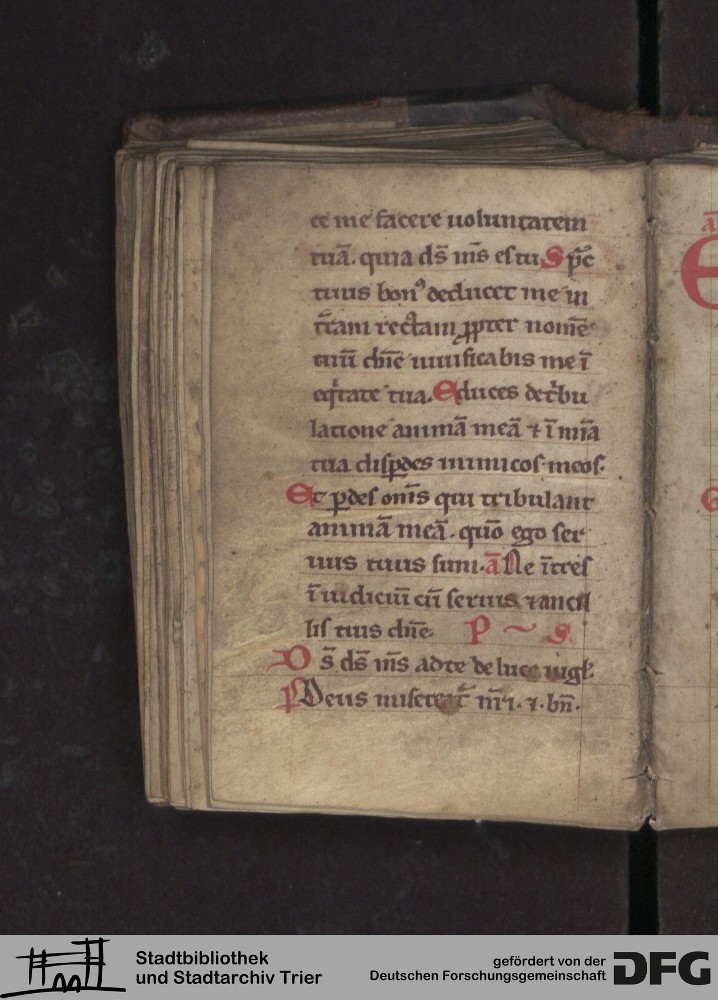 ce me facere uoluntatem
tuā. quia ds̄ ms̄ es tu Sp̄c
tuus bonꝰ deducet me in
t̄ram rectam ꝓpter nomē
tuū dn̄e uiuificabis me ī
eq̇tate tua. Educes de tͥbu
latione animā meā ⁊ ī mīa
tua disꝑdes inimicos meos.
Et ꝑdes om̄s qui tribulant
animā meā. qm̄o ego ser
uus tuus sum. ā Ne ītres
ī iudiciū cū seruis ⁊ ancil
lis tuis dn̄e. P S
Ds̄ ds̄ ms̄ ad te de luce uigl̄.
P Deus misereat᷑ nr̄i. ⁊ bn̄.
ā
E
G
Stadtbibliothek
und Stadtarchiv Trier
gefördert von der
Deutschen Forschungsgemeinschaft
DFG